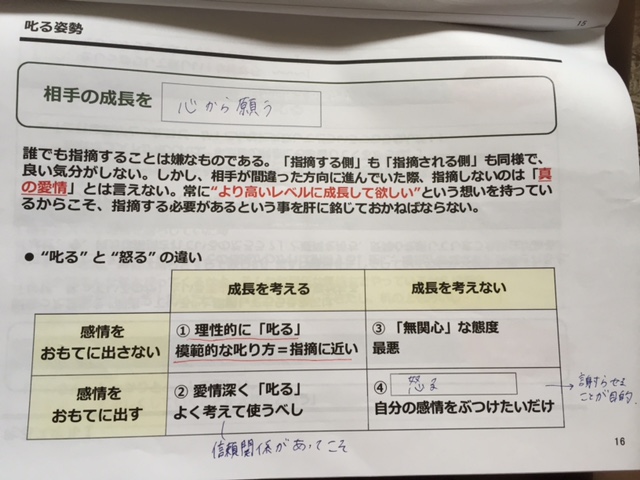 15
叱る姿勢
相手の成長を 心から願う
誰でも指摘することは嫌なものである。「指摘する側」も「指摘される側」も同様で、
良い気分がしない。しかし、相手が間違った方向に進んでいた際、指摘しないのは「真
の愛情」とは言えない。常に“より高いレベルに成長して欲しい”という想いを持ってい
るからこそ、指摘する必要があるという事を肝に銘じておかねばならない。
● “叱る” と “怒る” の違い
成長を考える
成長を考えない
感情を
おもてに出さない
① 理性的に「叱る」
模範的な叱り方=指摘に近い
③ 「無関心」な態度
最悪
感情を
おもてに出す
② 愛情深く「叱る」
よく考えて使うべし
④ 怒る
自分の感情をぶつけたいだけ
→ 謝らせる
ことが目的
信頼関係があってこそ
16